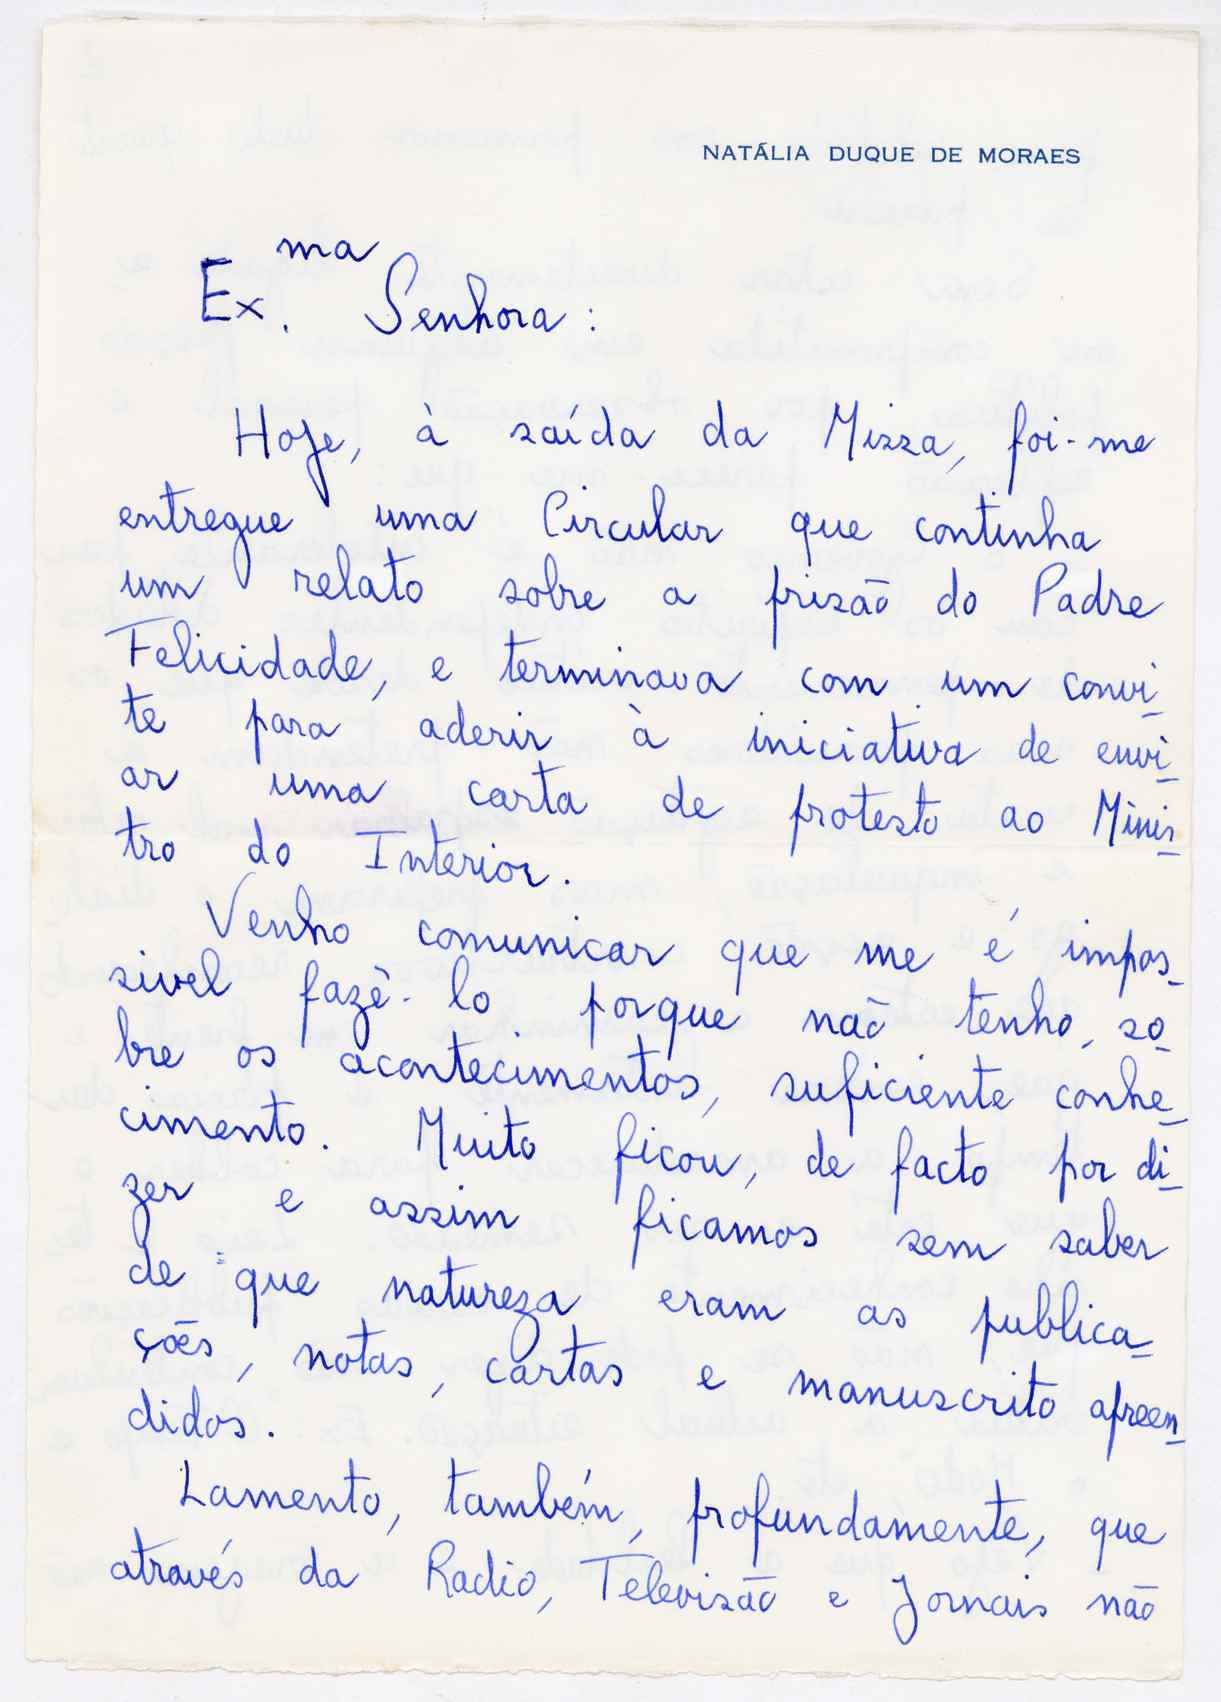 NATÁLIA DUQUE DE MORAES
Ex.ma Senhora:
Hoje, à saída da Missa, foi-me
entregue uma Circular que continha
um relato sobre a prisão do Padre
Felicidade, e terminava com um convi-
te para aderir à iniciativa de envi-
ar uma carta de protesto ao Minis-
tro do Interior.
Venho comunicar que me é impos-
sivel fazê-lo porque não tenho, so-
bre os acontecimentos, suficiente conhe-
cimento. Muito ficou, de facto por di-
zer e assim ficamos sem saber
de que natureza eram as publica-
ções, notas, cartas e manuscrito apreen-
didos.
Lamento, também, profundamente, que
através da Radio, Televisão e Jornais não